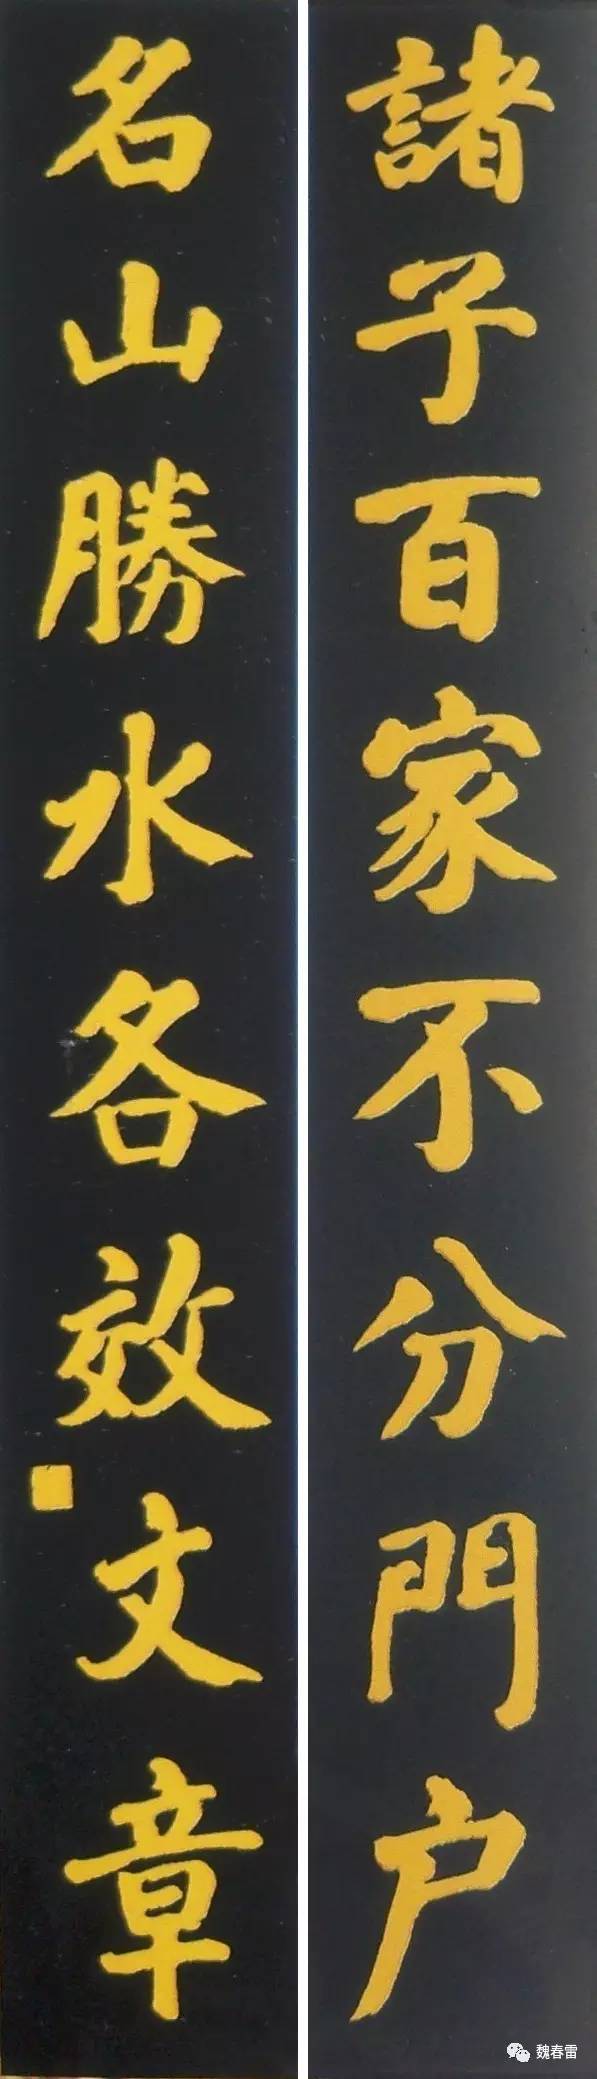 諸子百家不分門户
名山勝水各效文章
魏春雷